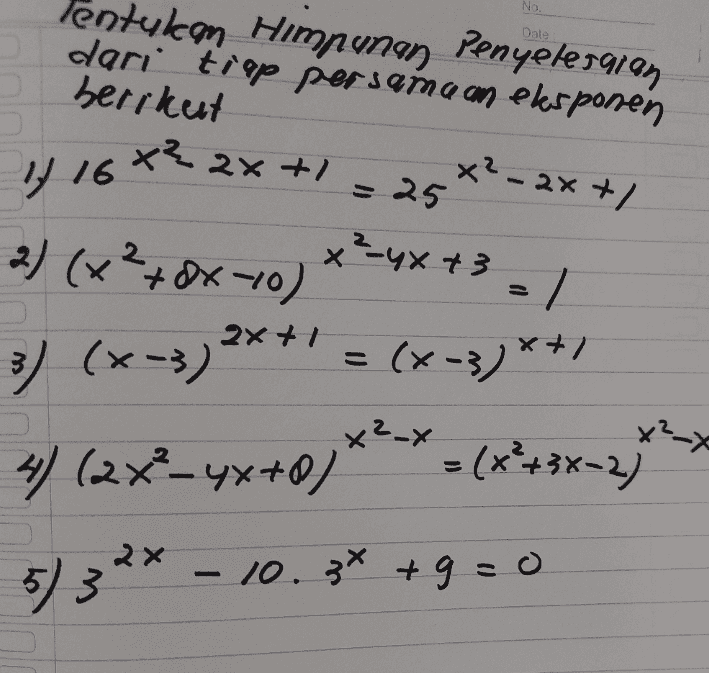 No.
Date
Tentukan Himpunan Penyelesaian
dari tiap persamaan eksponen
berikut
1) 16^{x² - 2x + 1} = 25^{x² - 2x + 1}
2) (x² + 8x - 10)^{x² - 4x + 3} = 1
3) (x - 3)^{2x + 1} = (x - 3)^{x + 1}
4) (2x² - 4x + 8)^{x² - x} = (x² + 3x - 2)^{x² - x}
5) 3^{2x} - 10 . 3^{x} + 9 = 0